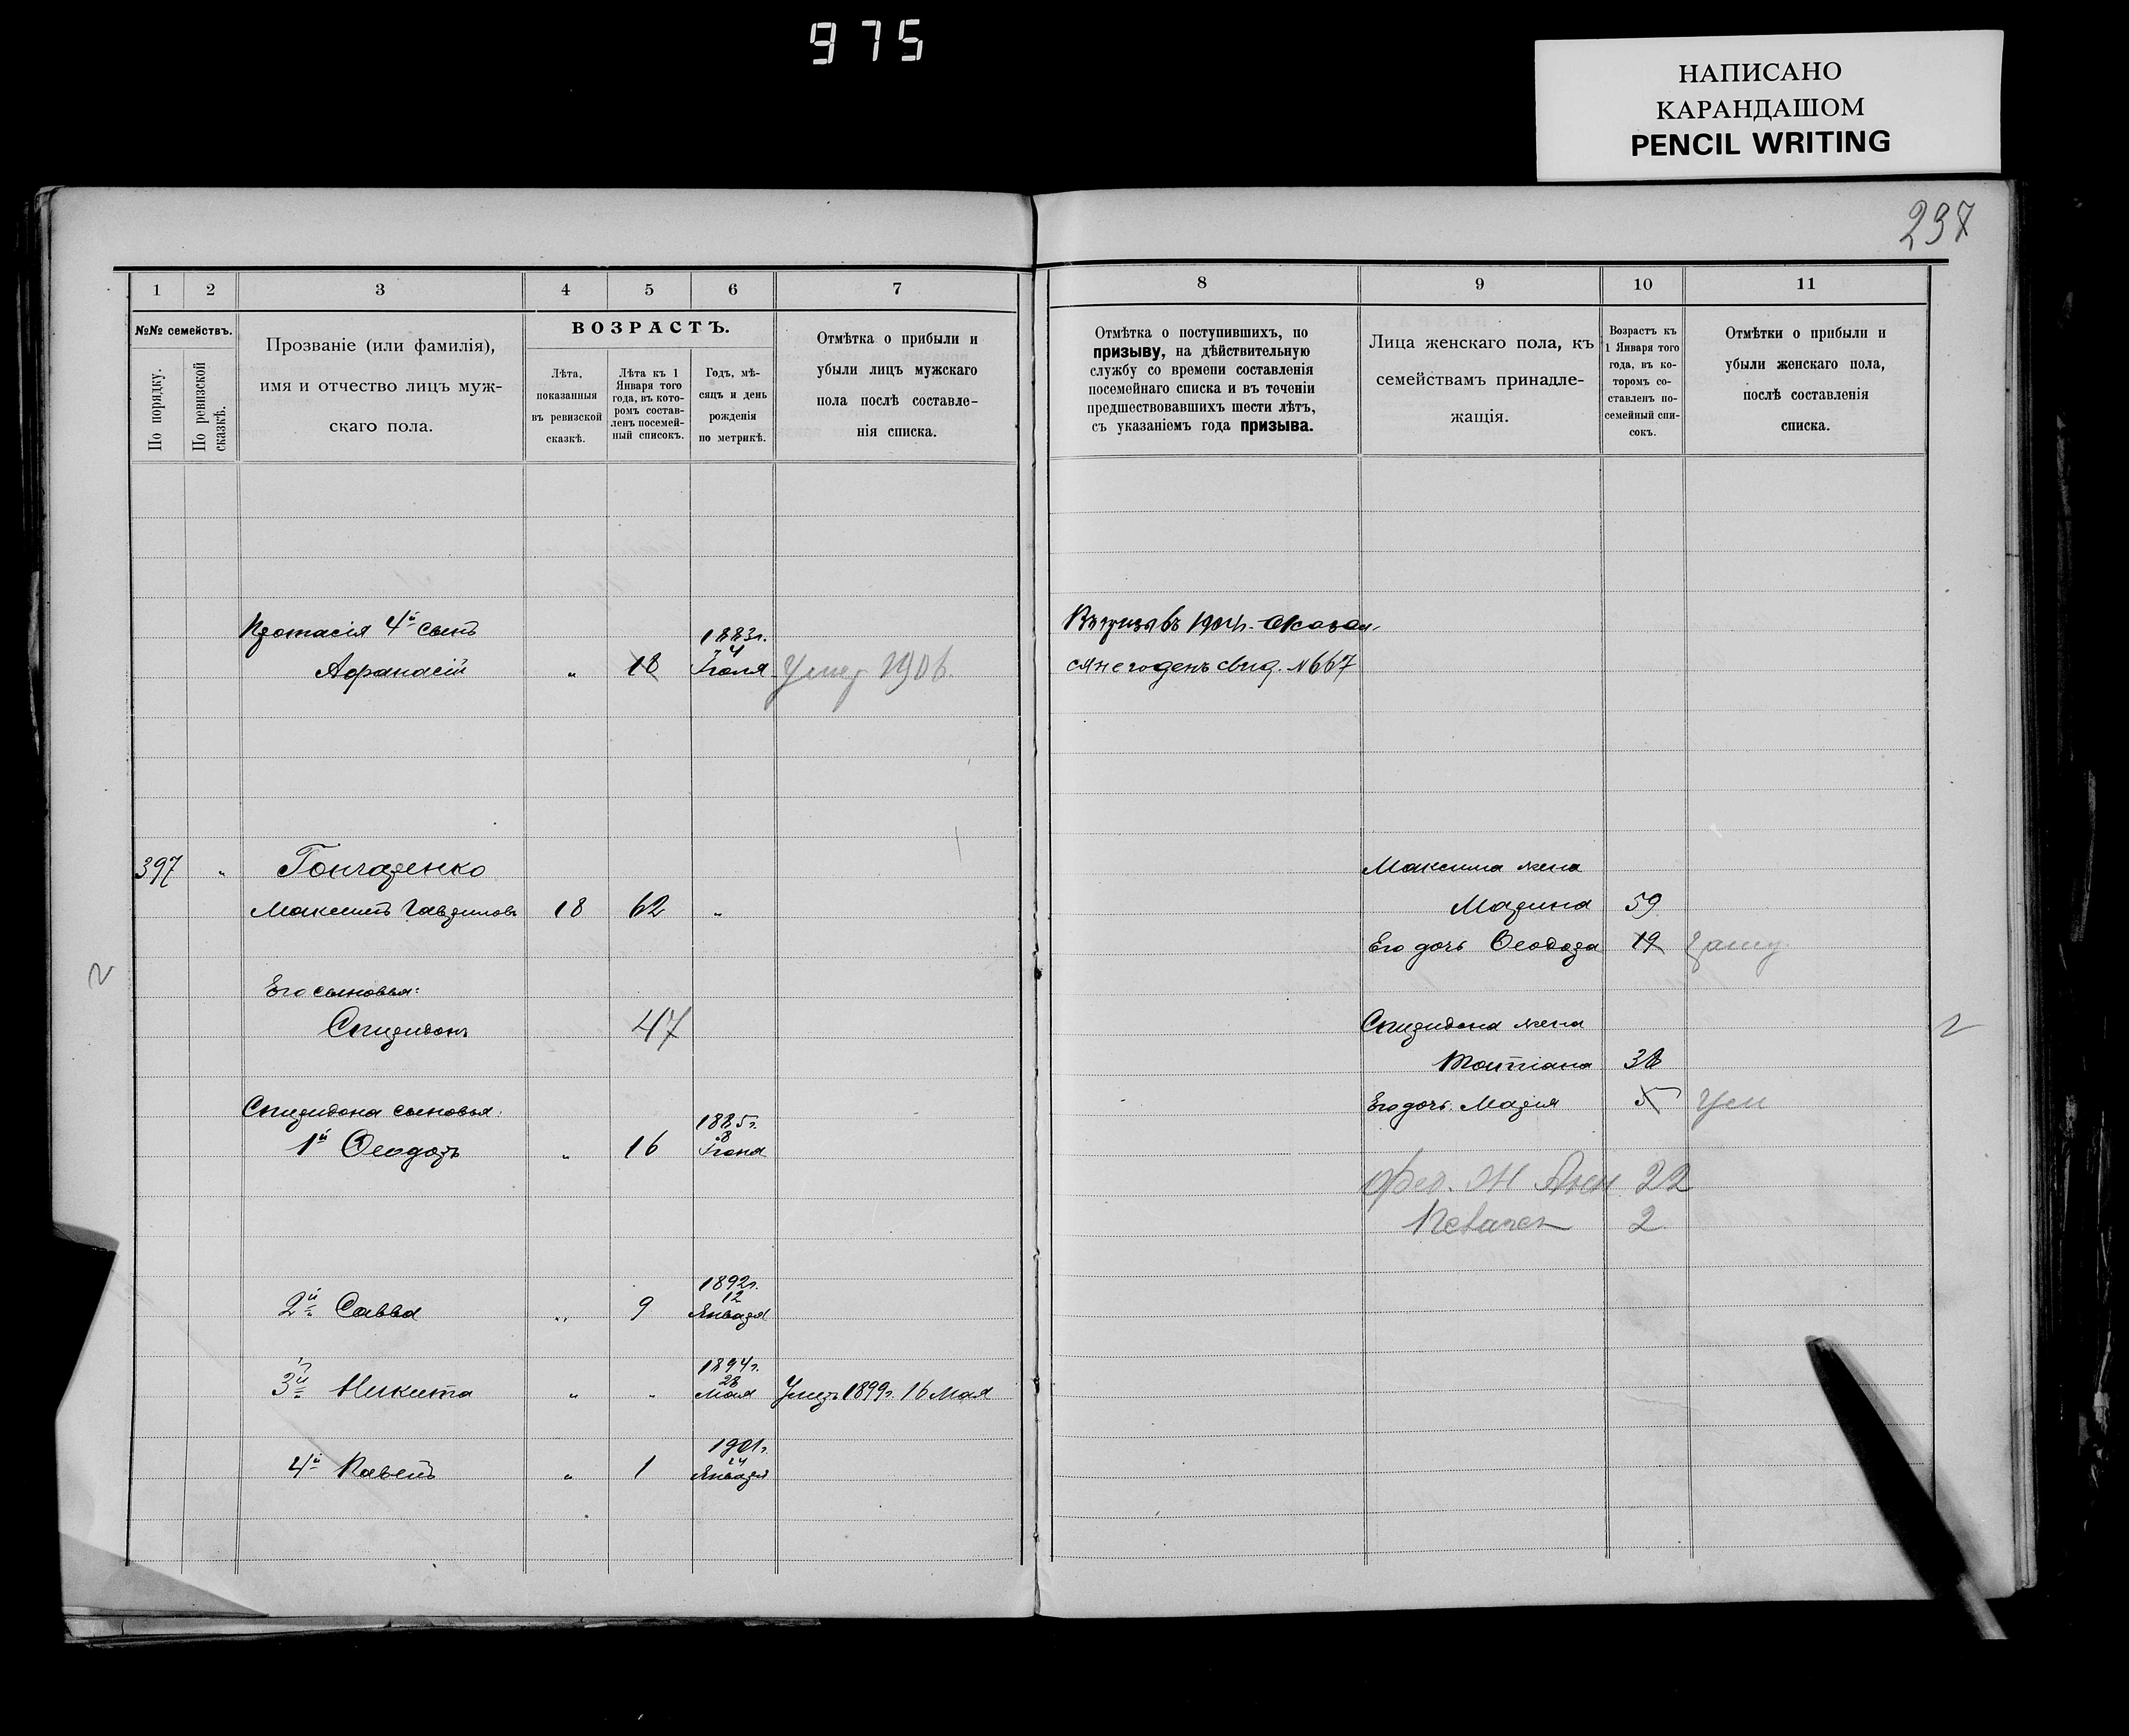 975
НАПИСАНО
КАРАНДАШОМ
PENCIL WRITING
237
1 2 3 4 5 6 7
№№ семействъ.
По порядку.
По ревизской сказкѣ.
Прозваніе (или фамилія),
имя и отчество лицъ муж-
скаго пола.
ВОЗРАСТЪ.
Лѣта,
показанныя
въ ревизской
сказкѣ.
Лѣта къ 1
Января того
года, въ кото-
ромъ состав-
ленъ посемей-
ный списокъ.
Годъ, мѣ-
сяцъ и день
рожденія
по метрикѣ.
Отмѣтка о прибыли и
убыли лицъ мужскаго
пола послѣ составле-
нія списка.
Протасія 4й сынъ
1883г.
Афанасій " 18 4 Іюля Умер 1906.
397 " Гончаренко
Максимъ Гавриловъ 18 62 "
Его сыновья:
Спиридонъ 47
Спиридона сыновья:
1885г.
1й Ѳеодоръ " 16 8 Іюня
1892г.
12
2й Савва " 9 Января
1894г.
28
3й Никита " " Мая Умеръ 1899г. 16 Мая
1901г.
4й Павелъ " 1 Января
8 9 10 11
Отмѣтка о поступившихъ, по
призыву, на дѣйствительную
службу со времени составленія
посемейнаго списка и въ теченіи
предшествовавшихъ шести лѣтъ,
съ указаніемъ года призыва.
Лица женскаго пола, къ
семействамъ принадле-
жащія.
Возрастъ къ
1 Января того
года, въ ко-
торомъ со-
ставленъ по-
семейный спи-
сокъ.
Отмѣтки о прибыли и
убыли женскаго пола,
послѣ составленія
списка.
Въ призывъ 1904г. Оказал-
ся негоденъ свид. №667
Максима жена
Марина 59
Его дочь Ѳеодора 19 Замуж
Спиридона жена
Татіана 38
Его дочь Марія 5 Ум
Фео. Ж 22
2